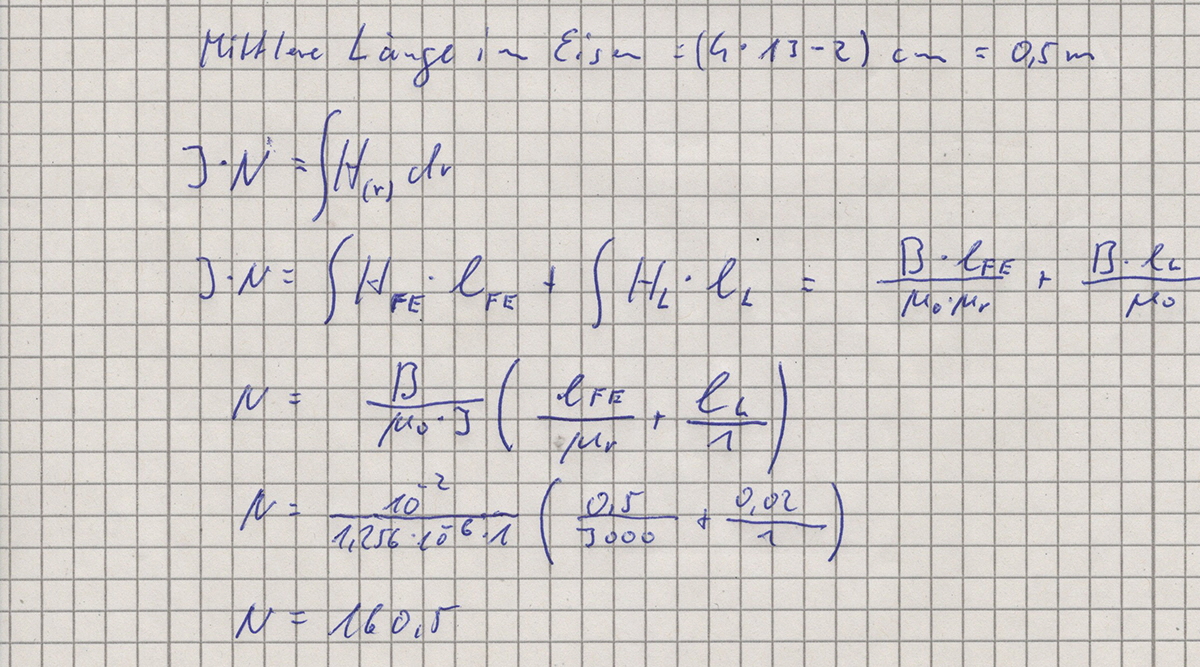 Mittlere Länge im Eisen = (4 · 13 - 2) cm = 0,5 m
I · N = ∫ H(r) dr
I · N = ∫ H_FE · l_FE + ∫ H_L · l_L = (B · l_FE)/(μ₀ · μr) + (B · l_L)/μ₀
N = B/(μ₀ · I) (l_FE/μr + l_L/1)
N = 10⁻²/(1,256 · 10⁻⁶ · 1) (0,5/3000 + 0,02/1)
N = 160,5